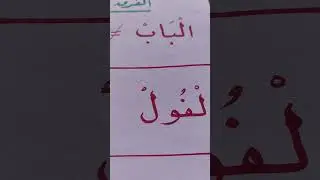 الْبَابْ ≠
لْفُولْ